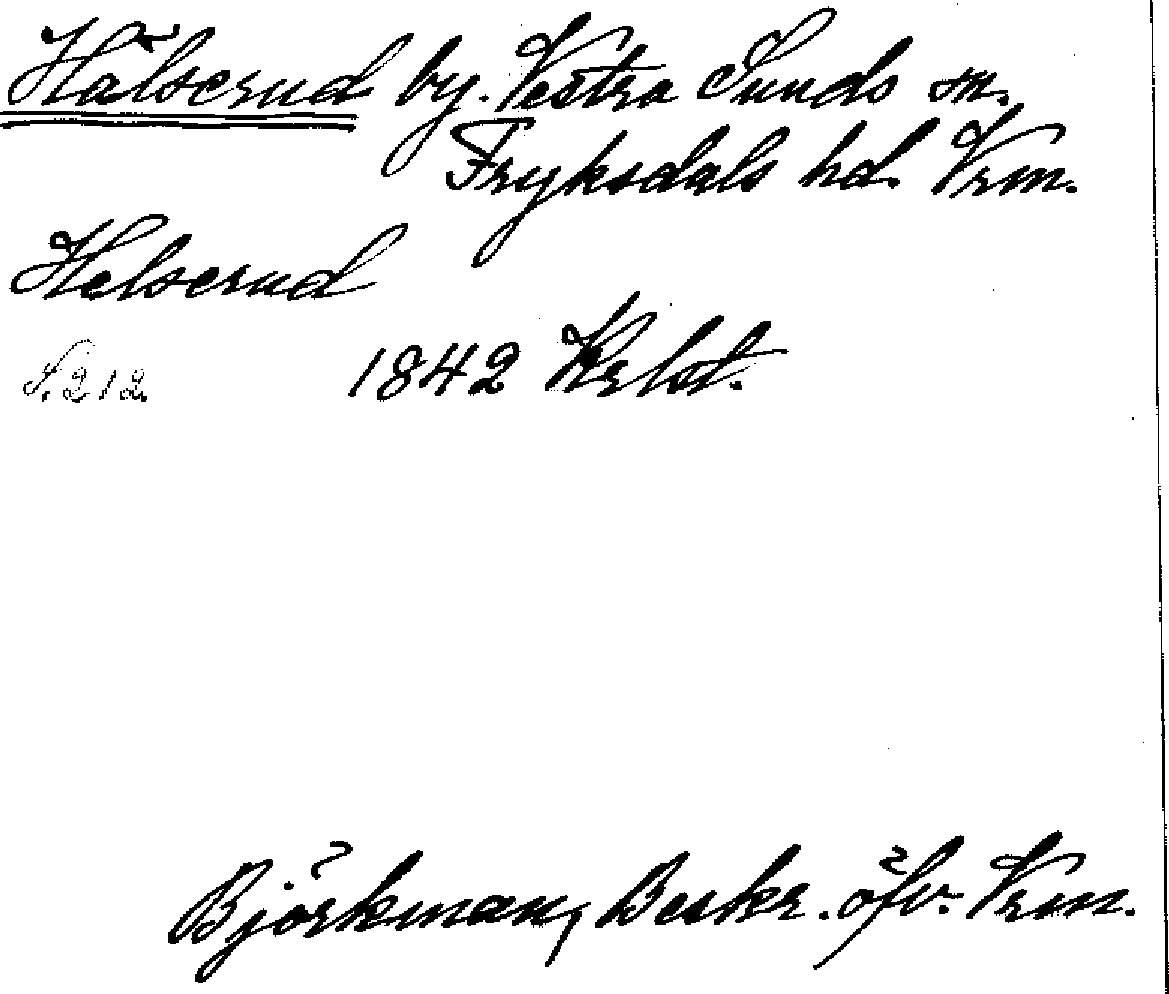 Hälserud by. Vestra Sunds sn.
Fryksdals hd. Vrm.
Helserud
S. 212. 1842 Krlst.
Björkman, Beskr. öfv. Vrm.